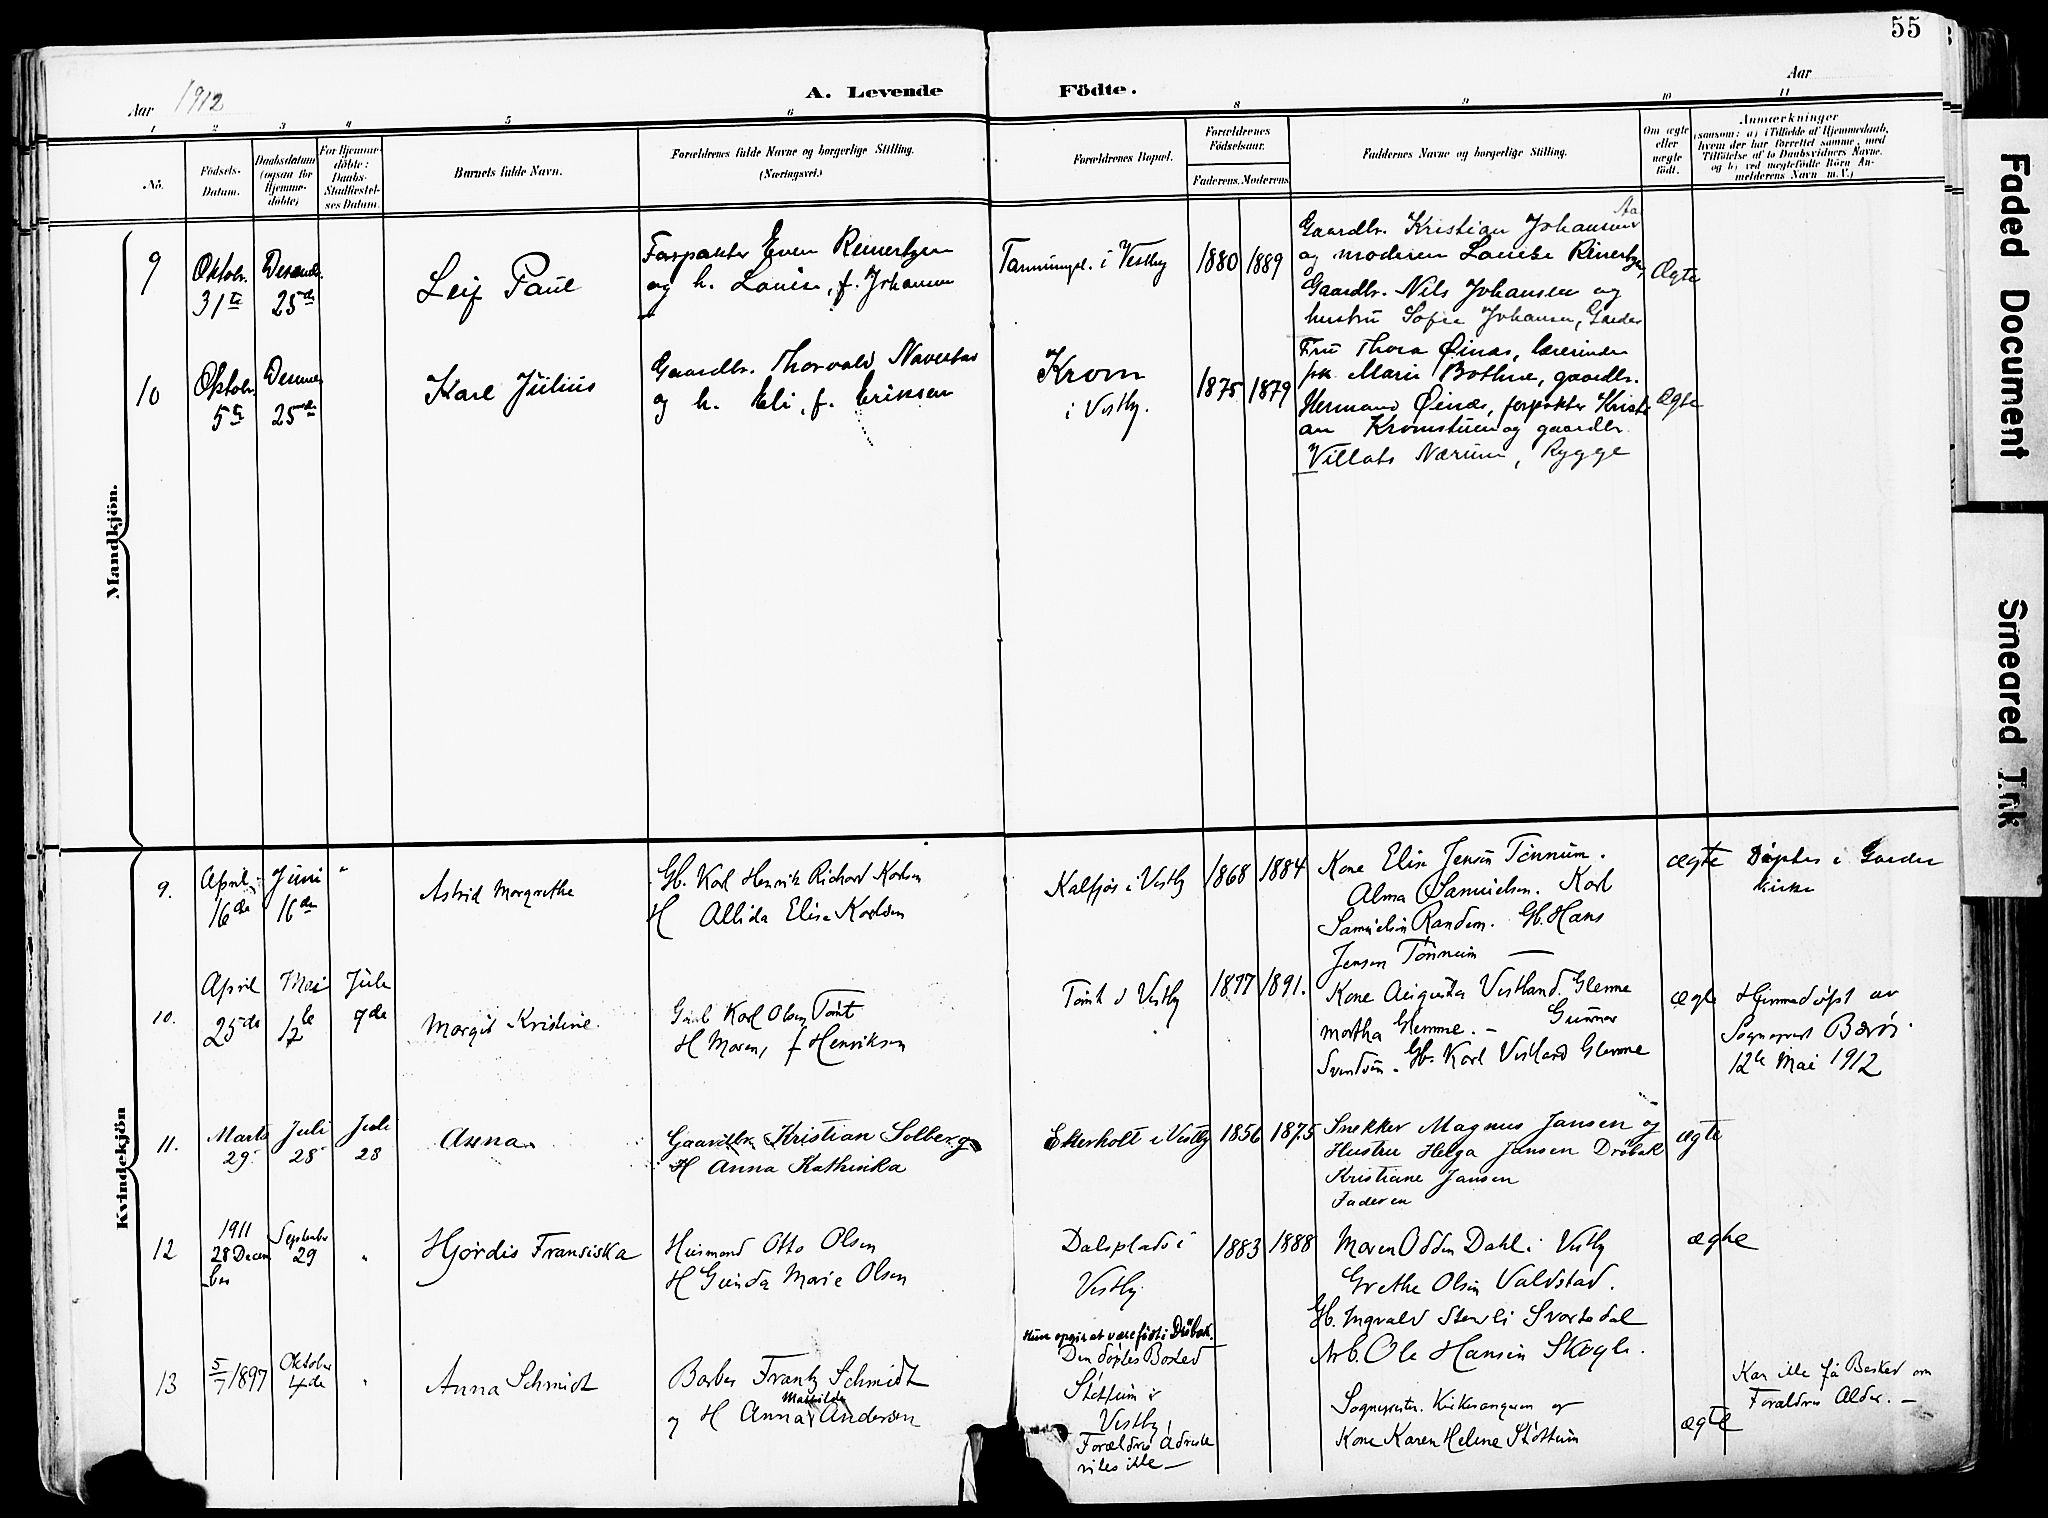 55
Aar 1912
A. Levende Födte.
Aar
1 2 3 4 5 6 8 9 10 11
No.
Födsels-Datum.
Daabsdatum (ogsaa for Hjemmedöbte)
For Hjemmedöbte: Daabs-Stadfæstelses Datum.
Barnets fulde Navn.
Forældrenes fulde Navne og borgerlige Stilling.
(Næringsvei.)
Forældrenes Bopæl.
Forældrenes Födselsaar.
Faderens. Moderens.
Faddernes Navne og borgerlige Stilling.
Om ægte eller uægte födt.
Anmærkninger
(saasom: a) i Tilfælde af Hjemmedaab, hvem der har forrettet samme, med Tilföielse af to Daabsvidners Navne. og b) ved uægtefödte Börn Anmelderens Navn m. V.)
Mandkjön.
9
Oktobr. 31te
Desembr. 25de
Leif Paul
Forpakter Even Reinertzen
og h. Louise, f. Johansen
i Vestby
1880 1889
Gaardbr. Kristian Johansen
og moderen Louise Reinertzen,
Gaardbr. Nils Johansen og
hustru Sofie Johansen, Garder
Ægte
10
Oktobr. 5te
25de
Karl Julius
Gaardbr. Thorvald Naverstad
og h. Eli, f. Eriksen
Krom
i Vestby.
1875 1879
Fru Thora Øinæs, lærerinde
frk. Marie Bothne, gaardbr.
Hermand Øinæs, forpakter Kristi
an Kromstuen og gaardbr.
Nærum, Rygge
Ægte
Kvindekjön
9.
April 16de
Juni 16de
"
Astrid Margrethe
Gb. Karl Henrik Richard Karlsen
H Allida Elise Karlsen
i Vestby
1868 1884
Kone Elise Jensen Tønnum.
Alma Samuelsen. Karl
Samuelsen Randem. Gb. Hans
Jensen Tønnum —
ægte
Døptes i Garder
kirke
10.
April 25de
Mai 12te
Juli 7de
Margit Kristine.
Karl Olsen Tomt
H Maren, f Henriksen
Tomt i Vestby
1877 1891.
Kone Augusta Vestland Glenne
Martha Glenne. — Gunnar
Svendsen. Gb. Karl Vestland Glenne
ægte
Hjemmedøpt av
Sogneprest
12te Mai 1912
11.
Marts 29
Juli 28
Juli 28
Anna
Gaardbr. Kristian Solberg
H Anna Kathinka
Ekerholt i Vestby
1856 1875
Snekker Magnus Jansen og
Hustru Helga Jansen Drøbak
Kristiane Jansen
Faderen
ægte
12
1911
28 Decem
ber
September 29
"
Hjørdis Fransiska
Husmand Otto Olsen
H Gunda Marie Olsen
Dalsplads i
Vestby
1883 1888
Maren Odden Dahl i Vestby
Grethe Olsen Valdstad.
Gb. Ingvald Stenli Svartedal
Arb. Ole Hansen Skogli.
ægte
13
5/7 1897
Oktober 4de
"
Anna Schmidt
Barber Frantz Schmidt
Mathilde
og H Anna Andersen
Hun opgir at være født i Drøbak.
Den døptes Bosted
Støttum i
Vestby,
Forældres Adresse
vites ikke —
Sogneprester. Kirkesangeren og
Kone Karen Helene Støttum
ægte
Kan ikke få Besked om
Forældres Alder. —
Faded Document
Smeared Ink